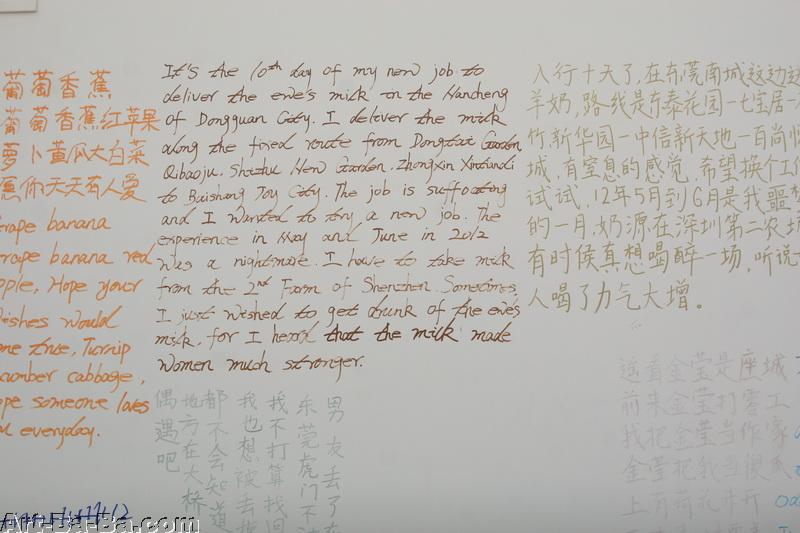 葡萄香蕉
葡萄香蕉红苹果
萝卜黄瓜大白菜
愿你天天有人爱
grape banana
grape banana red
apple, Hope your
wishes would
come true, Turnip
cucumber cabbage,
hope someone loves
you everyday.
It's the 10th day of my new job to
deliver the ewe's milk in the Nancheng
of Dongguan City. I deliver the milk
along the fixed route from Dongtai Garden
Qibaoju, Shizhu New Garden, Zhongxin Xintiandi
to Baishang Joy City. The job is suffocating
and I wanted to try a new job. The
experience in May and June in 2012
was a nightmare. I have to take milk
from the 2nd Farm of Shenzhen. Sometimes,
I just wished to get drunk of the ewe's
milk, for I heard that the milk made
women much stronger.
入行十天了,在东莞南城这边送
羊奶,路线是东泰花园一七宝居一
竹新华园一中信新天地一百尚
城,有窒息的感觉,希望换个工作
试试,12年5月到6月是我噩梦
的一月,奶源在深圳第二农场
有时候真想喝醉一场,听说
人喝了力气大增。
男友丢了在
东莞虎门不
我不打算找回
我也想被去
都不会知道
地方在大桥
偶遇吧
遥看金莹是座城
前来金莹打零工
我把金莹当作家
金莹把我当傻瓜
上有荷花未开
Art-Ba-Ba.com